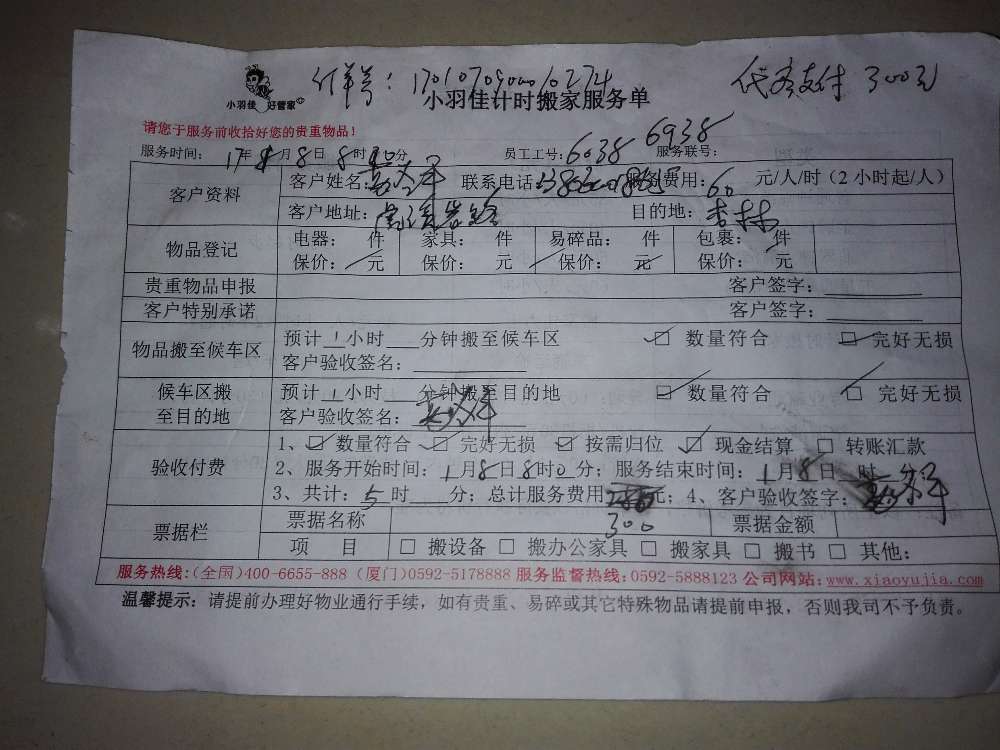 小羽佳 好管家
代客支付 300元
小羽佳计时搬家服务单
请您于服务前收拾好您的贵重物品!
服务时间: 17年1月8日8时 分 员工工号:6038 6938 服务联号:
客户资料 客户姓名: 联系电话: 服务费用:60 元/人/时(2小时起/人)
客户地址: 目的地:杏林
物品登记 电器: 件 家具: 件 易碎品: 件 包裹: 件
保价: 元 保价: 元 保价: 元 保价: 元
贵重物品申报 客户签字:
客户特别承诺 客户签字:
物品搬至候车区 预计1小时 分钟搬至候车区 ☑ 数量符合 ☑ 完好无损
客户验收签名:
候车区搬至目的地 预计1小时 分钟搬至目的地 ☑ 数量符合 ☑ 完好无损
客户验收签名:
验收付费 1、☑ 数量符合 ☑ 完好无损 ☑ 按需归位 ☑ 现金结算 □ 转账汇款
2、服务开始时间:1月8日8时0分;服务结束时间:1月8日 时
3、共计:5时 分;总计服务费用 元;4、客户验收签字:
300
票据栏 票据名称 票据金额
项 目 □ 搬设备 □ 搬办公家具 □ 搬家具 □ 搬书 □ 其他:
服务热线:(全国)400-6655-888 (厦门)0592-5178888 服务监督热线:0592-5888123 公司网站:www.xiaoyujia.com
温馨提示:请提前办理好物业通行手续,如有贵重、易碎或其它特殊物品请提前申报,否则我司不予负责。